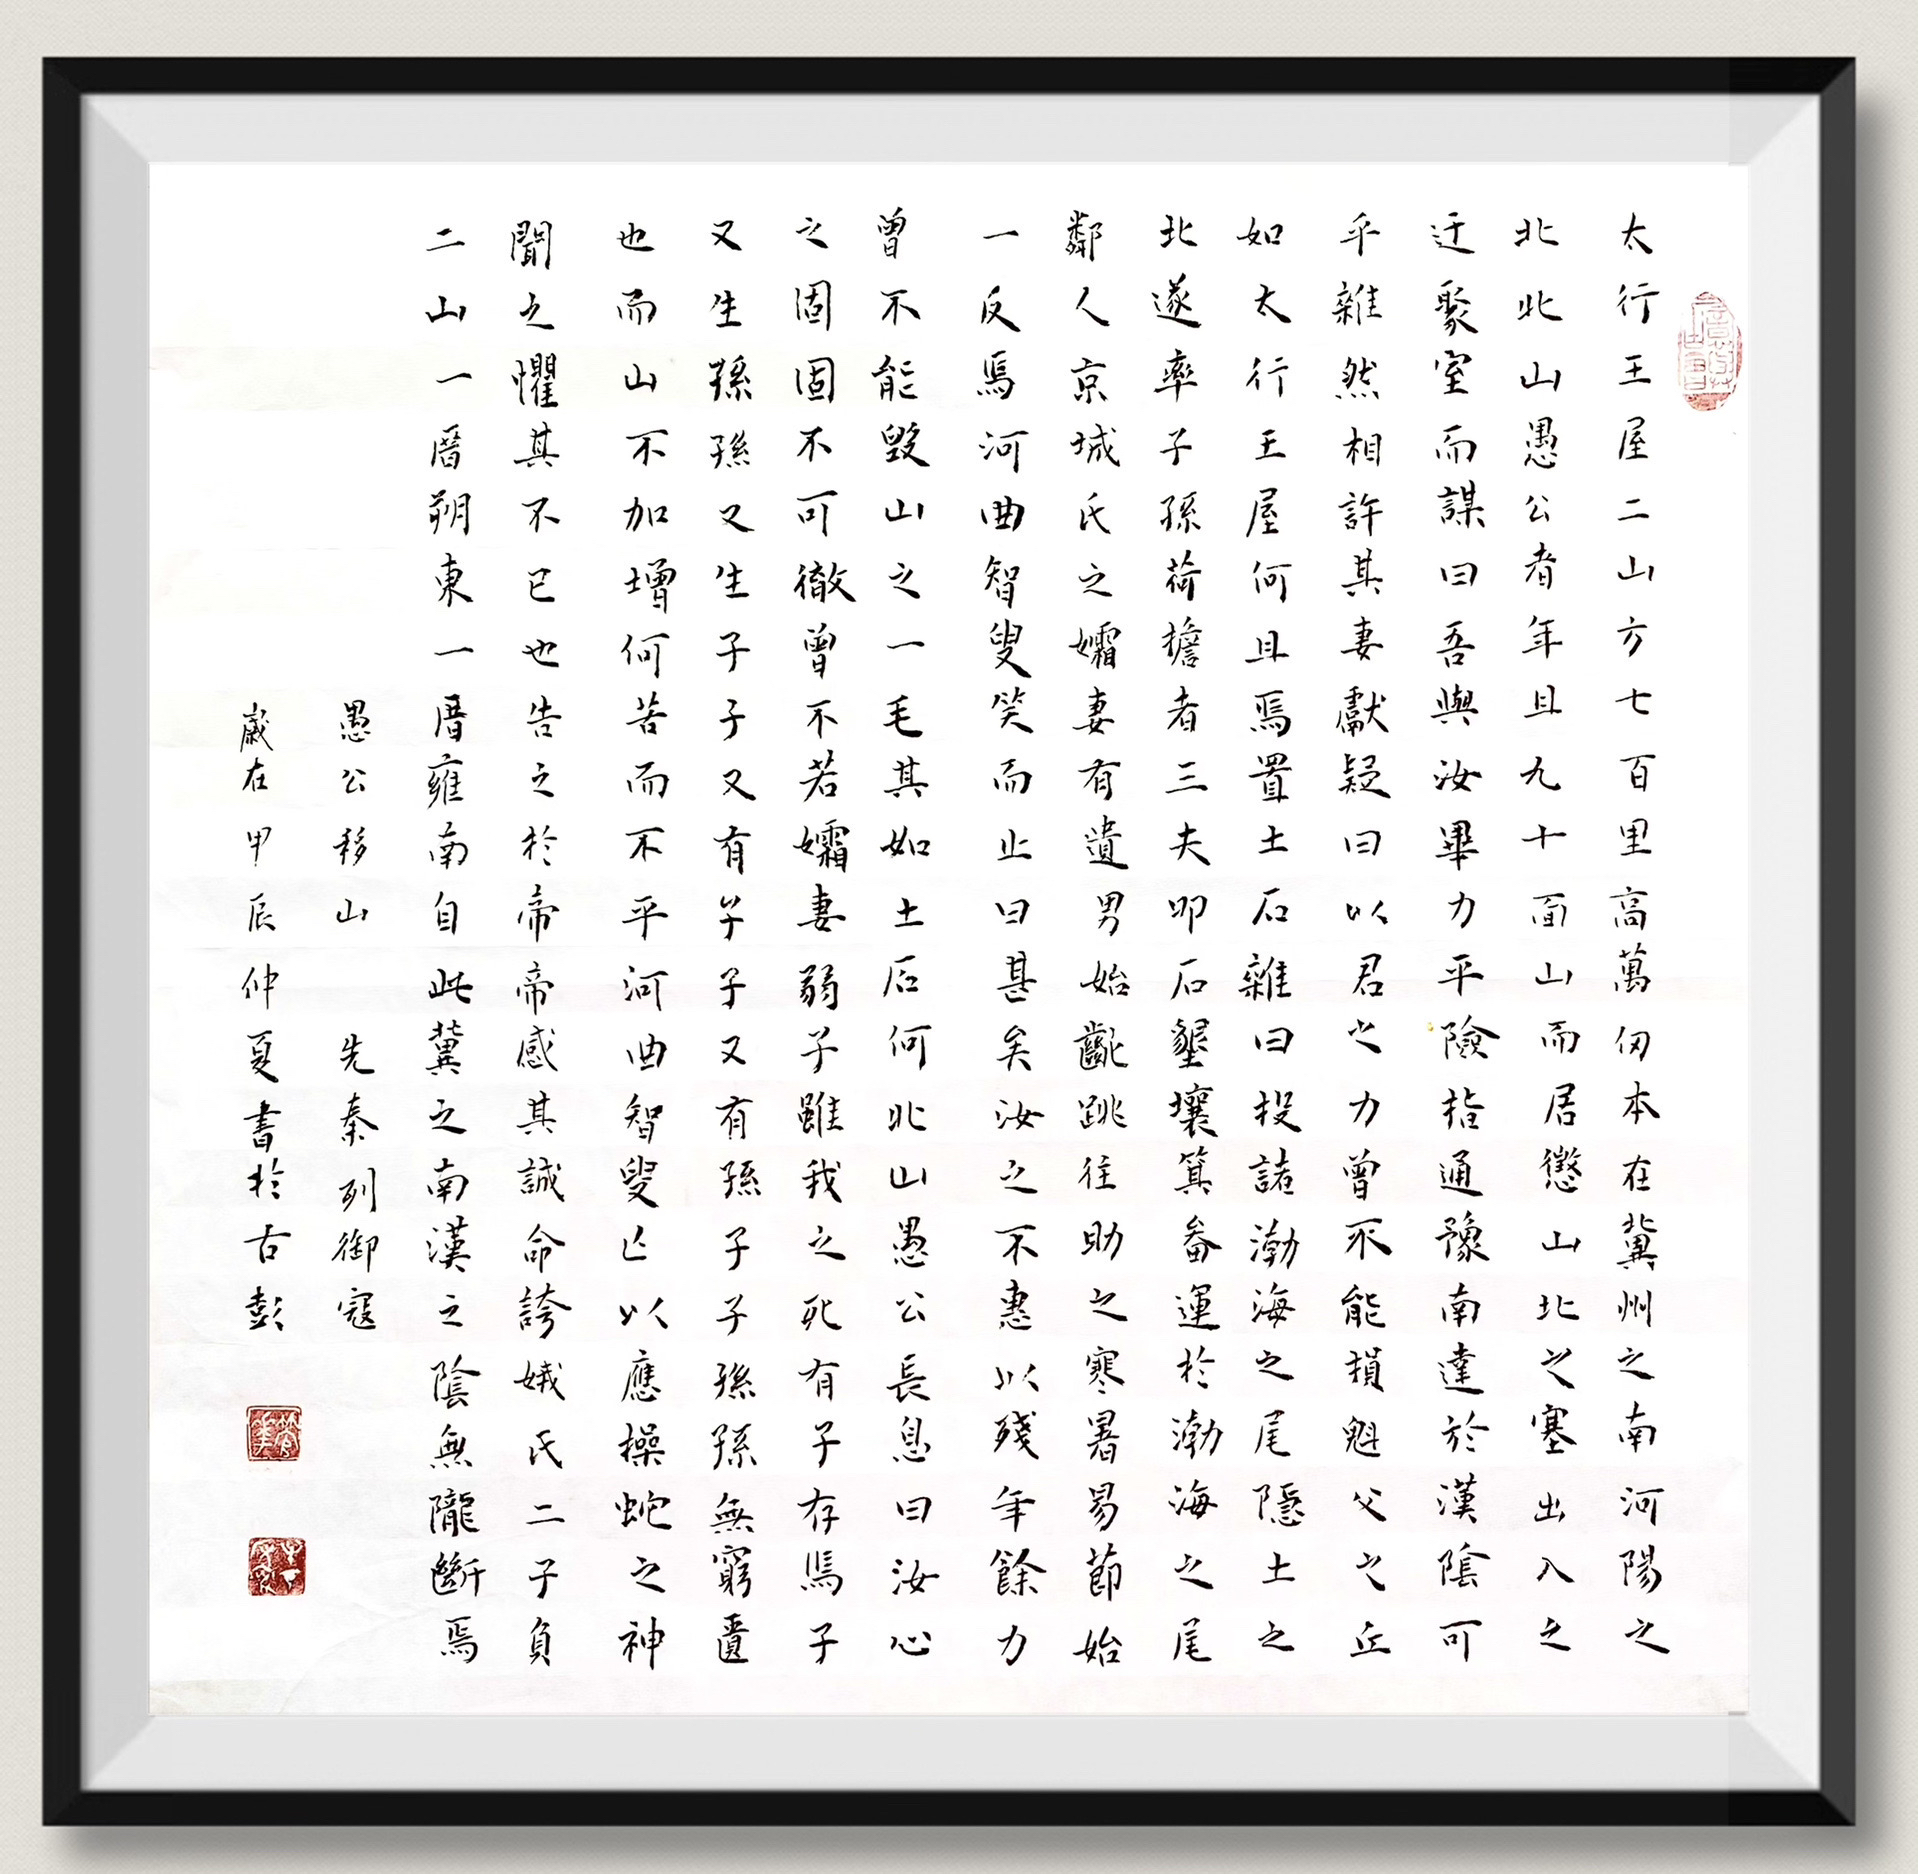 太行王屋二山方七百里高萬仞本在冀州之南河陽之
北北山愚公者年且九十面山而居懲山北之塞出入之
迂聚室而謀曰吾與汝畢力平險指通豫南達於漢陰可
乎雜然相許其妻獻疑曰以君之力曾不能損魁父之丘
如太行王屋何且焉置土石雜曰投諸渤海之尾隱土之
北遂率子孫荷擔者三夫叩石墾壤箕畚運於渤海之尾
鄰人京城氏之孀妻有遺男始齔跳往助之寒暑易節始
一反焉河曲智叟笑而止曰甚矣汝之不惠以殘年餘力
曾不能毀山之一毛其如土石何北山愚公長息曰汝心
之固固不可徹曾不若孀妻弱子雖我之死有子存焉子
又生孫孫又生子子又有子子又有孫子子孫孫無窮匱
也而山不加增何苦而不平河曲智叟亡以應操蛇之神
聞之懼其不已也告之於帝帝感其誠命誇娥氏二子負
二山一厝朔東一厝雍南自此冀之南漢之陰無隴斷焉
愚公移山 先秦列御寇
歲在甲辰仲夏書於古彭